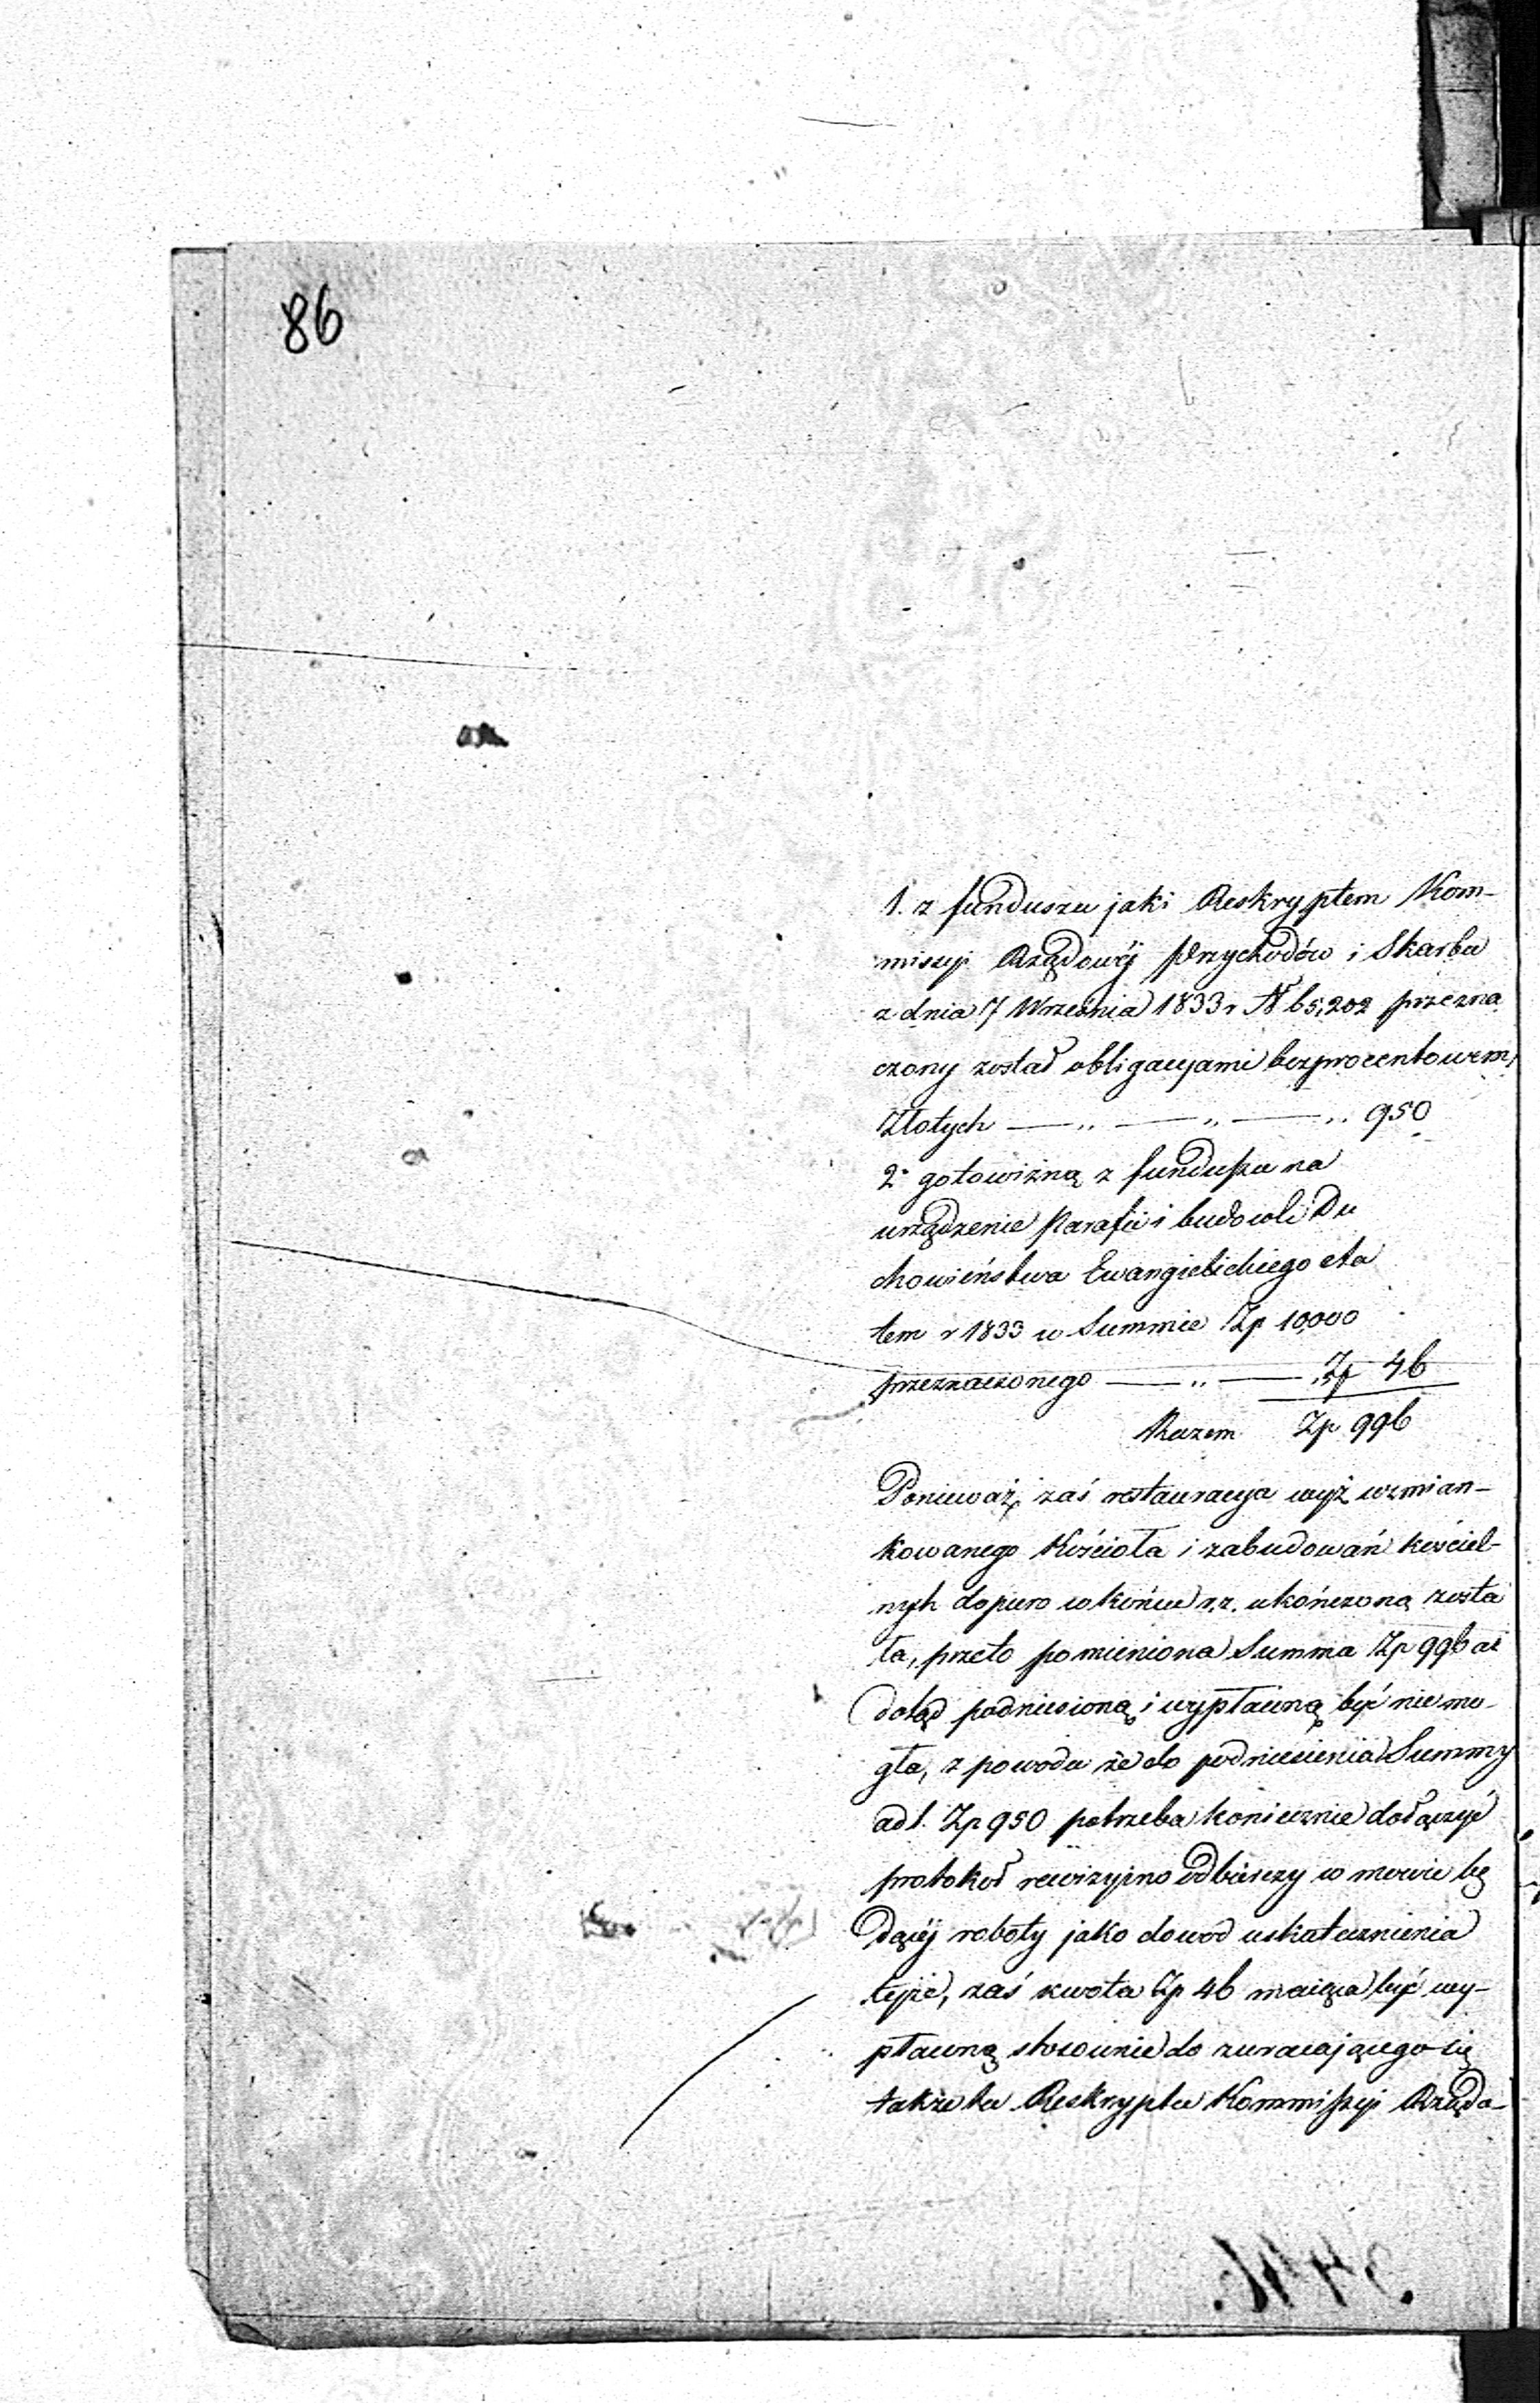 86
1. z funduszu jaki Reskryptem Kom-
missyi Rządowéj Przychodów i Skarbu
z dnia 7 Września 1833 r N 65,202 przezna
czony został obligacyami bezprocentowem
Złotych — „ — „ — „ 950
2° gotowizną z funduszu na
urządzenie Parafii i budowli Du
chowieństwa Ewangielickiego eta
tem r 1833 w Summie Zp 10,000
przeznaczonego — „ — Zp 46
Razem Zp 996
Ponieważ zaś restauracya wyż wzmian-
kowanego Kościoła i zabudowań kościel-
nych dopiero w końcu r. z. ukończoną zosta
ła, przeto pomieniona Summa Zp 996 aż
dotąd podniesioną i wypłacuną być nie mo-
gła, z powodu że do podniesienia Summy
ad 1. Zp 950 potrzeba koniecznie dołączyć
protokoł rewizyjno odbiorczy w mowie bę
dącéj roboty jako dowód uskutecznienia
tejże, zaś kwota Zp 46 maiąca być wy-
płacuną stosownie do zwracającego się
także tu Reskryptu Kommissyi Rządo-